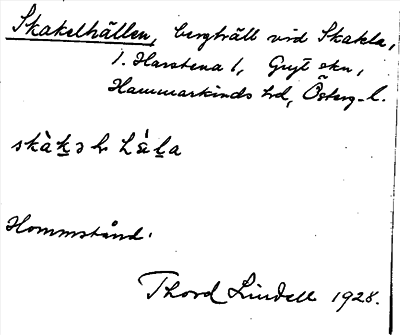 Skakelhällen, bergträtt vid Skakla,
1. Harstena 1, Gryt skn,
Hammarkinds hd, Österg. l.
Hommstånd.
Thord Lindell 1928.